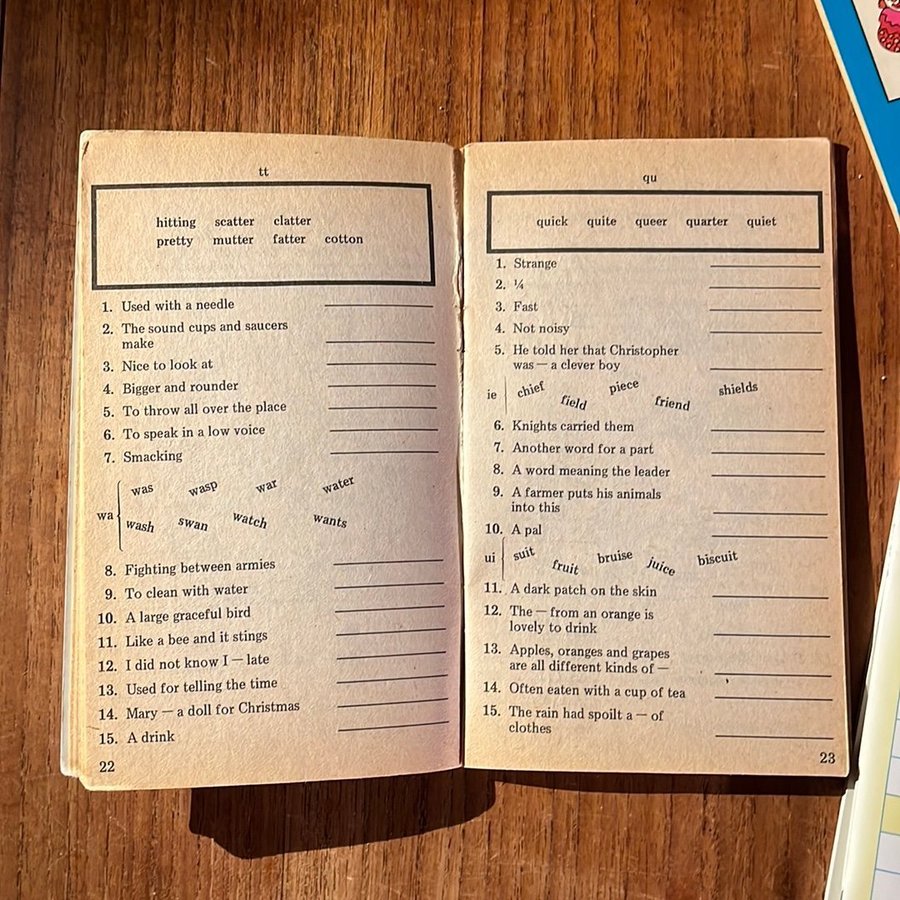 tt
hitting scatter clatter
pretty mutter fatter cotton
1. Used with a needle
2. The sound cups and saucers
make
3. Nice to look at
4. Bigger and rounder
5. To throw all over the place
6. To speak in a low voice
7. Smacking
wa
was wasp war water
wash swan watch wants
8. Fighting between armies
9. To clean with water
10. A large graceful bird
11. Like a bee and it stings
12. I did not know I — late
13. Used for telling the time
14. Mary — a doll for Christmas
15. A drink
22
qu
quick quite queer quarter quiet
1. Strange
2. ¼
3. Fast
4. Not noisy
5. He told her that Christopher
was — a clever boy
ie chief field piece friend shields
6. Knights carried them
7. Another word for a part
8. A word meaning the leader
9. A farmer puts his animals
into this
10. A pal
ui suit fruit bruise juice biscuit
11. A dark patch on the skin
12. The — from an orange is
lovely to drink
13. Apples, oranges and grapes
are all different kinds of —
14. Often eaten with a cup of tea
15. The rain had spoilt a — of
clothes
23